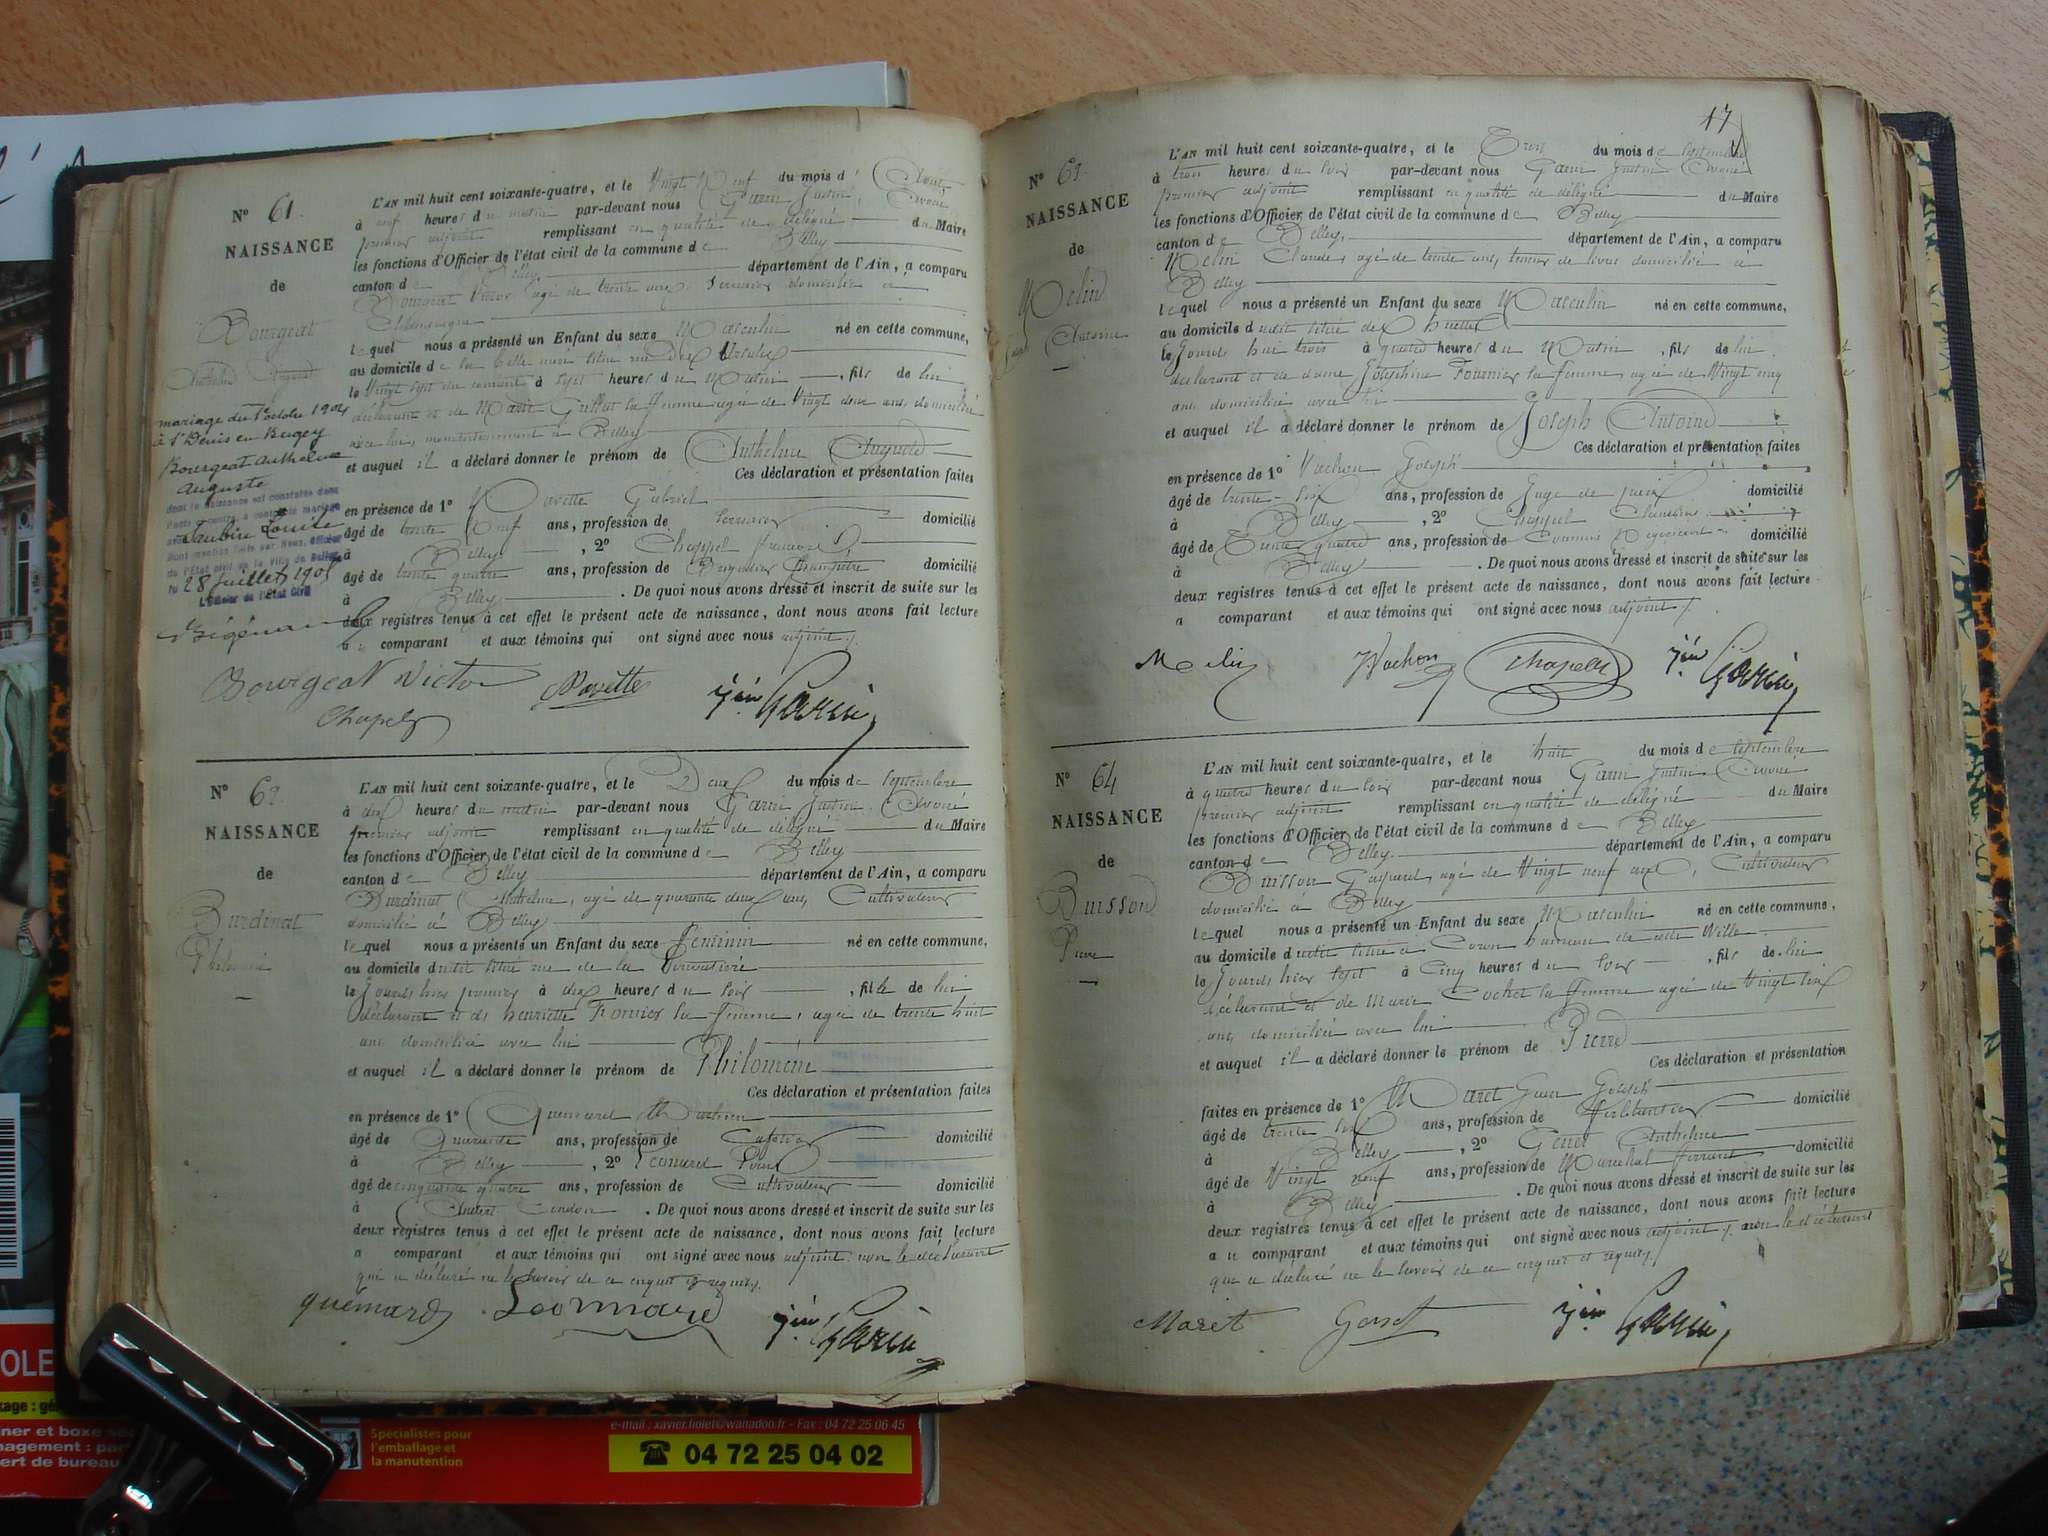 N° 61.
NAISSANCE
de
Bourgeat
Anthelme Auguste
mariage du 1er octobre 1904
à St Denis en Bugey
Bourgeat Anthelme
Auguste
dont la naissance est constatée dans
Taubin Louise
Dont mention faite par Nous, officier
de l'État civil de la Ville de Belley
28 juillet 1905
L'Officier de l'État Civil
L'AN mil huit cent soixante-quatre, et le Vingt Neuf du mois d' Août,
à neuf heures du matin par-devant nous Garin Justin, Avoué
premier adjoint remplissant en qualité de délégué du Maire
les fonctions d'Officier de l'état civil de la commune de Belley
canton de Belley département de l'Ain, a comparu
Bourgeat Victor, agé de trente ans, Serrurier domicilié à
lequel nous a présenté un Enfant du sexe Masculin né en cette commune,
au domicile de sa belle mère situé rue des Ursules
le Vingt sept du courant à sept heures du Matin, fils de lui
déclarant et de Marie Guillot sa femme agée de Vingt deux ans, domiciliée
avec lui, momentanément à Belley
et auquel il a déclaré donner le prénom de Anthelme Auguste
Ces déclaration et présentation faites
en présence de 1° Navette Gabriel
âgé de trente Neuf ans, profession de Serrurier domicilié
à Belley, 2° Chappel François
âgé de trente quatre ans, profession de Brigadier Champêtre domicilié
à Belley. De quoi nous avons dressé et inscrit de suite sur les
deux registres tenus à cet effet le présent acte de naissance, dont nous avons fait lecture
au comparant et aux témoins qui ont signé avec nous adjoint
Bourgeat Victor Navette jin Garin
Chapel
N° 62.
NAISSANCE
de
Burdinat
Philomène
L'AN mil huit cent soixante-quatre, et le Deux du mois de Septembre
à dix heures du matin par-devant nous Garin Justin, Avoué
premier adjoint remplissant en qualité de délégué du Maire
les fonctions d'Officier de l'état civil de la commune de Belley
canton de Belley département de l'Ain, a comparu
Burdinat Anthelme, agé de quarante deux ans, Cultivateur
domicilié à Belley
lequel nous a présenté un Enfant du sexe Féminin né en cette commune,
au domicile dudit situé rue de la
le Jourd'hier premier à dix heures du soir, fille de lui
déclarant et de henriette Fornier sa femme, agée de trente huit
ans domiciliée avec lui
et auquel il a déclaré donner le prénom de Philomène
Ces déclaration et présentation faites
en présence de 1° Quemard
âgé de Quarante ans, profession de Cafetier domicilié
à Belley, 2° Léonard
âgé de cinquante quatre ans, profession de Cultivateur domicilié
à Andert Condon. De quoi nous avons dressé et inscrit de suite sur les
deux registres tenus à cet effet le présent acte de naissance, dont nous avons fait lecture
a comparant et aux témoins qui ont signé avec nous adjoint non le déclarant
qui a déclaré ne le savoir de ce enquis et requis.
quémard Leonnard jin Garin
17
N° 63.
NAISSANCE
de
Melin
Joseph Antoine
L'AN mil huit cent soixante-quatre, et le Trois du mois de Septembre
à trois heures du soir par-devant nous Garin Justin Avoué
premier adjoint remplissant en qualité de délégué du Maire
les fonctions d'Officier de l'état civil de la commune de Belley
canton de Belley département de l'Ain, a comparu
Melin Claude, agé de trente ans, teneur de livres domicilié à
Belley
lequel nous a présenté un Enfant du sexe Masculin né en cette commune,
au domicile dudit situé
le Jourd'hui trois à quatre heures du Matin, fils de lui
déclarant et de dame Joséphine Fournier sa femme, agée de Vingt cinq
ans domiciliée avec lui
et auquel il a déclaré donner le prénom de Joseph Antoine
Ces déclaration et présentation faites
en présence de 1° Vachon Joseph
âgé de trente-six ans, profession de Juge de paix domicilié
à Belley, 2° Chappel
âgé de Trente quatre ans, profession de Commis Négociant domicilié
à Belley. De quoi nous avons dressé et inscrit de suite sur les
deux registres tenus à cet effet le présent acte de naissance, dont nous avons fait lecture
a comparant et aux témoins qui ont signé avec nous adjoint
Melin JVachon Chapelle jin Garin
N° 64
NAISSANCE
de
Buisson
Pierre
L'AN mil huit cent soixante-quatre, et le huit du mois de Septembre
à quatre heures du soir par-devant nous Garin Justin Avoué
premier adjoint remplissant en qualité de délégué du Maire
les fonctions d'Officier de l'état civil de la commune de Belley
canton de Belley département de l'Ain, a comparu
Buisson Gaspard, agé de Vingt neuf ans, Cultivateur
domicilié à Belley
lequel nous a présenté un Enfant du sexe Masculin né en cette commune,
au domicile dudit situé à Coron hameau de cette Ville
le Jourd'hier sept à Cinq heures du soir, fils de lui
déclarant et de Marie Cochet sa femme agée de Vingt six
ans, domiciliée avec lui
et auquel il a déclaré donner le prénom de Pierre
Ces déclaration et présentation
faites en présence de 1° Maret Jean Joseph
âgé de trente six ans, profession de Ferblantier domicilié
à Belley, 2° Genet Anthelme
âgé de Vingt neuf ans, profession de Maréchal Ferrant domicilié
à Belley. De quoi nous avons dressé et inscrit de suite sur les
deux registres tenus à cet effet le présent acte de naissance, dont nous avons fait lecture
au comparant et aux témoins qui ont signé avec nous adjoint non le déclarant
qui a déclaré ne le savoir de ce enquis et requis
Maret Genet jin Garin
e-mail : xavier.fiolet@wanadoo.fr - Fax : 04 72 25 06 45
Spécialistes pour
l'emballage et
la manutention
☎ 04 72 25 04 02